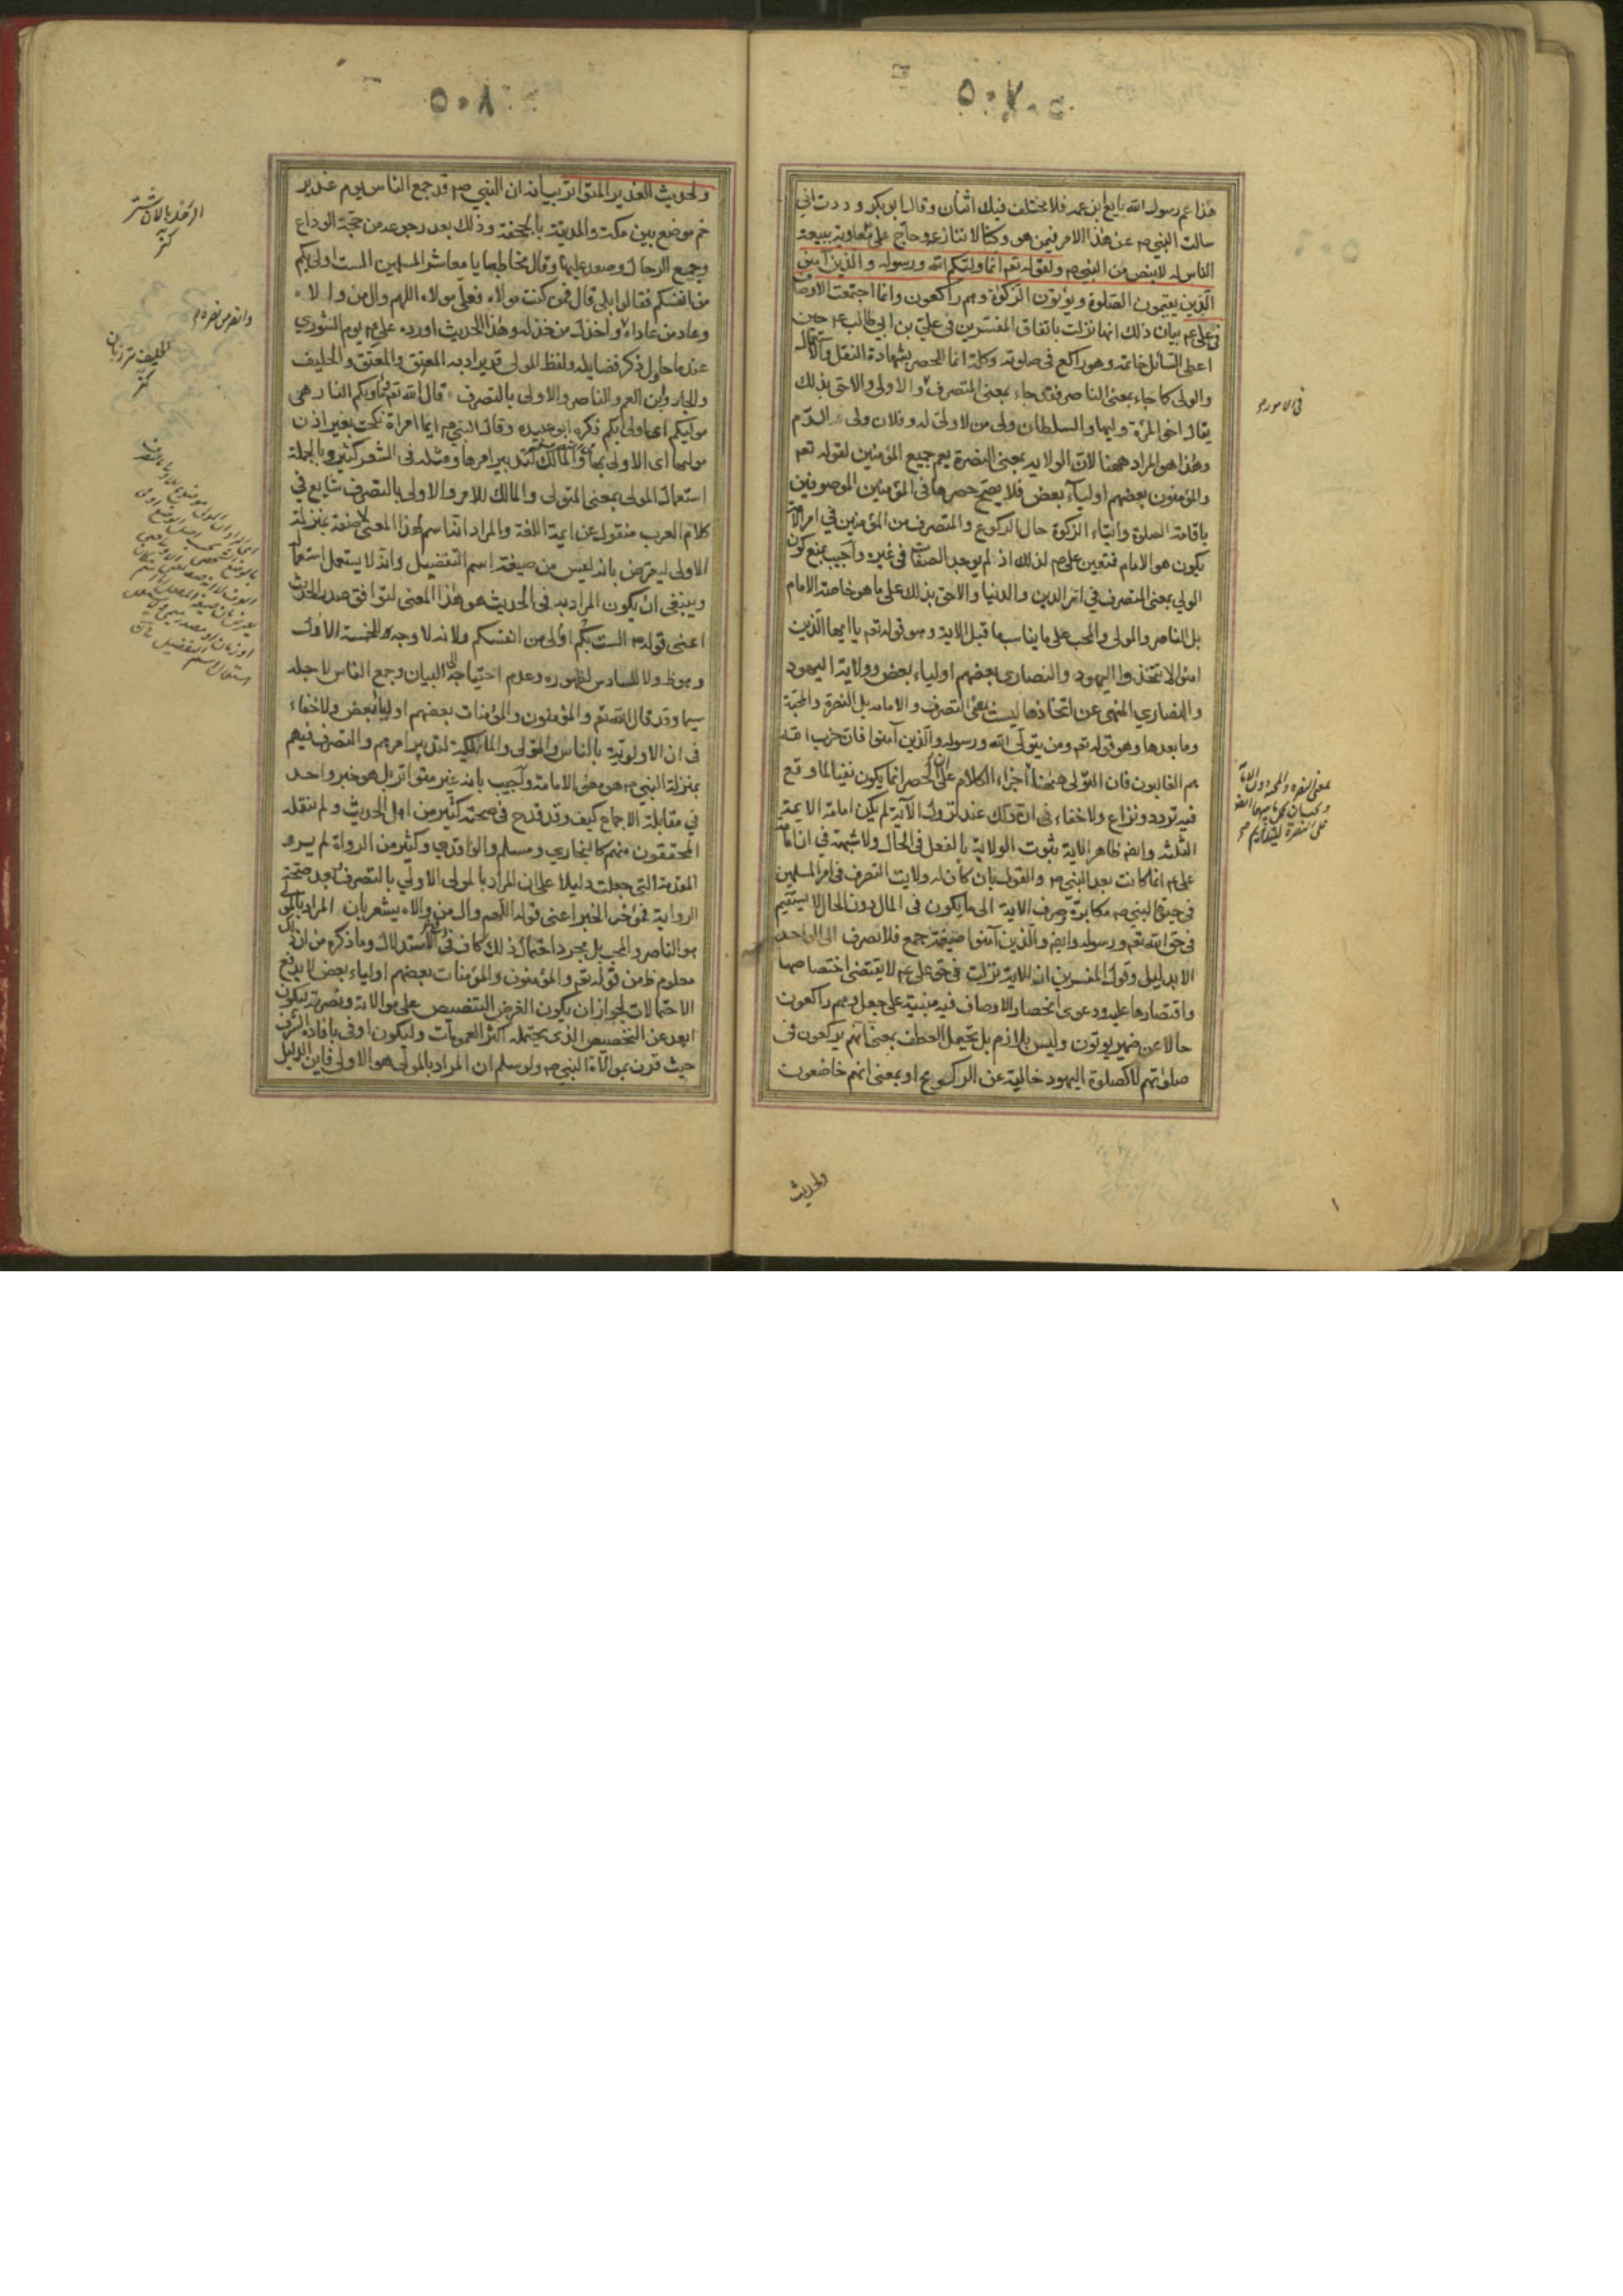 ٥٠٧
هذا عم رسول الله بايع ابن عمه فلا يختلف فيك اثنان وقال ابو بكر وددت اني
سالت النبي ص عن هذا الامر فيمن هو وكنا لا ننازعه وحاج علي معاوية ببيعة
الناس له لا بنص من النبي ص ولقوله تعم انما وليكم الله ورسوله والذين آمنوا
الذين يقيمون الصلوة ويؤتون الزكوة وهم راكعون وانما اجتمعت الاوصاف
في علي ع بيان ذلك انها نزلت باتفاق المفسرين في علي بن ابي طالب ع حين
اعطى السائل خاتمه وهو راكع في صلوته وكلمة انما للحصر بشهادة النقل والاستعمال
والولي كما جاء بمعنى الناصر فقد جاء بمعنى المتصرف والاولى والاحق بذلك
يقال اخو المرأة وليها والسلطان ولي من لا ولي له وفلان ولي الدم
وهذا هو المراد ههنا لان الولاية بمعنى النصرة يعم جميع المؤمنين لقوله تعم
والمؤمنون بعضهم اولياء بعض فلا يصح حصرها في المؤمنين الموصوفين
باقامة الصلوة وايتاء الزكوة حال الركوع والمتصرف من المؤمنين في امر الامة
يكون هو الامام فتعين علي ع لذلك اذ لم يوجد الصفات في غيره واجيب بمنع كون
الولي بمعنى المتصرف في امر الدين والدنيا والاحق بذلك على ما هو خاصة الامام
بل الناصر والمولى والمحب على ما يناسب ما قبل الاية وهو قوله تعم يا ايها الذين
امنوا لا تتخذوا اليهود والنصارى بعضهم اولياء بعض وولاية اليهود
والنصارى المنهى عن اتخاذها ليست بمعنى التصرف والامامة بل النصرة والمحبة
وما بعدها وهو قوله تعم ومن يتولى الله ورسوله والذين آمنوا فان حزب الله
هم الغالبون فان التولي ههنا اجزاء الكلام على ان الحصر انما يكون نفيا لما وقع
فيه تردد ونزاع ولا خفاء في ان ذلك عند نزول الآية لم يكن امامة الايمة
الثلثه وايضا ظاهر الاية ثبوت الولاية بالفعل في الحال ولا شبهة في ان امامة
علي ع انما كانت بعد النبي ص والقول بان كان له ولايت التصرف في امر المسلمين
في حيوة النبي ص مكابرة وصرف الاية الى ما يكون في المال دون الحال لا يستقيم
في حق الله تعم ورسوله وايضا والذين آمنوا صيغة جمع فلا تصرف الى الواحد
الا بدليل وقول المفسرين ان الاية نزلت في حق علي ع لا يقتضي اختصاصها
واقتصارها عليه ودعوى انحصار الاوصاف فيه مبنية على جعل وهم راكعون
حالا عن ضمير يوتون وليس بلازم بل يحتمل العطف بمعنى انهم يركعون في
صلوتهم لا كصلوة اليهود خالية عن الركوع او بمعنى انهم خاضعون
ولحديث
في الامور
٥٠٨
ولحديث الغدير المتواتر بيانه ان النبي ص قد جمع الناس يوم غدير
خم موضع بين مكة والمدينة بالجحفة وذلك بعد رجوعه من حجة الوداع
وجمع الرحال وصعد عليها وقال مخاطبا يا معاشر المسلمين الست اولى بكم
من انفسكم فقالوا بلى قال فمن كنت مولاه فعلي مولاه اللهم وال من والاه
وعاد من عاداه واخذل من خذله وهذا الحديث اورده علي ع يوم الشورى
عندما حاول ذكر فضايله ولفظ المولى قد يراد به المعتِق والمعتَق والحليف
والجار وابن العم والناصر والاولى بالتصرف قال الله تعم مأويكم النار هي
موليكم اي اولى بكم ذكره ابو عبيده وقال النبي ص ايما امرأة نكحت بغير اذن
موليها اى الاولى بها والمالك لتدبير امرها ومثله في الشعر كثير وبالجملة
استعمال المولى بمعنى المتولى والمالك للامر والاولى بالتصرف شايع في
كلام العرب منقول عن ايمة اللغة والمراد انه اسم لهذا المعنى لا صفة بمنزلة
الاولى ليعترض بانه ليس من صيغة اسم التفضيل وانه لا يستعمل استعماله
وينبغي ان يكون المراد به في الحديث هو هذا المعنى لتوافق صدر الحديث
اعنى قوله ص الست بكم اولى من انفسكم ولانه لا وجه للخمسة الاول
وهو ظ ولا للسادس لظهوره وعدم احتياجه الى البيان وجمع الناس لاجله
سيما وقد قال الله تعم والمؤمنون والمؤمنات بعضهم اولياء بعض ولا خفاء
في ان الاولوية بالناس والتولي والمالكية لتدبير امرهم والتصرف فيهم
بمنزلة النبي ص هو معنى الامامة واجيب بانه غير متواتر بل هو خبر واحد
في مقابلة الاجماع كيف وقد قدح في صحته كثير من اهل الحديث ولم ينقله
المحققون منهم كالبخاري ومسلم والواقدي وكثير من الرواة لم يرو
المقدمة التي جعلت دليلا على ان المراد بالمولى الاولى بالتصرف بعد صحة
الرواية فمؤخر الخبر اعني قوله اللهم وال من والاه يشعر بان المراد بالمولى
هو الناصر والمحب بل مجرد احتمال ذلك كاف في دفع الاستدلال وما ذكره من ان ذلك
معلوم ظ من قوله تعم والمؤمنون والمؤمنات بعضهم اولياء بعض لا يدفع
الاحتمالات لجواز ان يكون الغرض التنصيص على موالاته ونصرته ليكون
ابعد عن التخصيص الذي يحتمله اكثر العمومات وليكون اوفى بافادة الشرف
حيث قرن بموالاة النبي ص ولو سلم ان المراد بالمولى هو الاولى فاين الدليل
وانصر من نصره